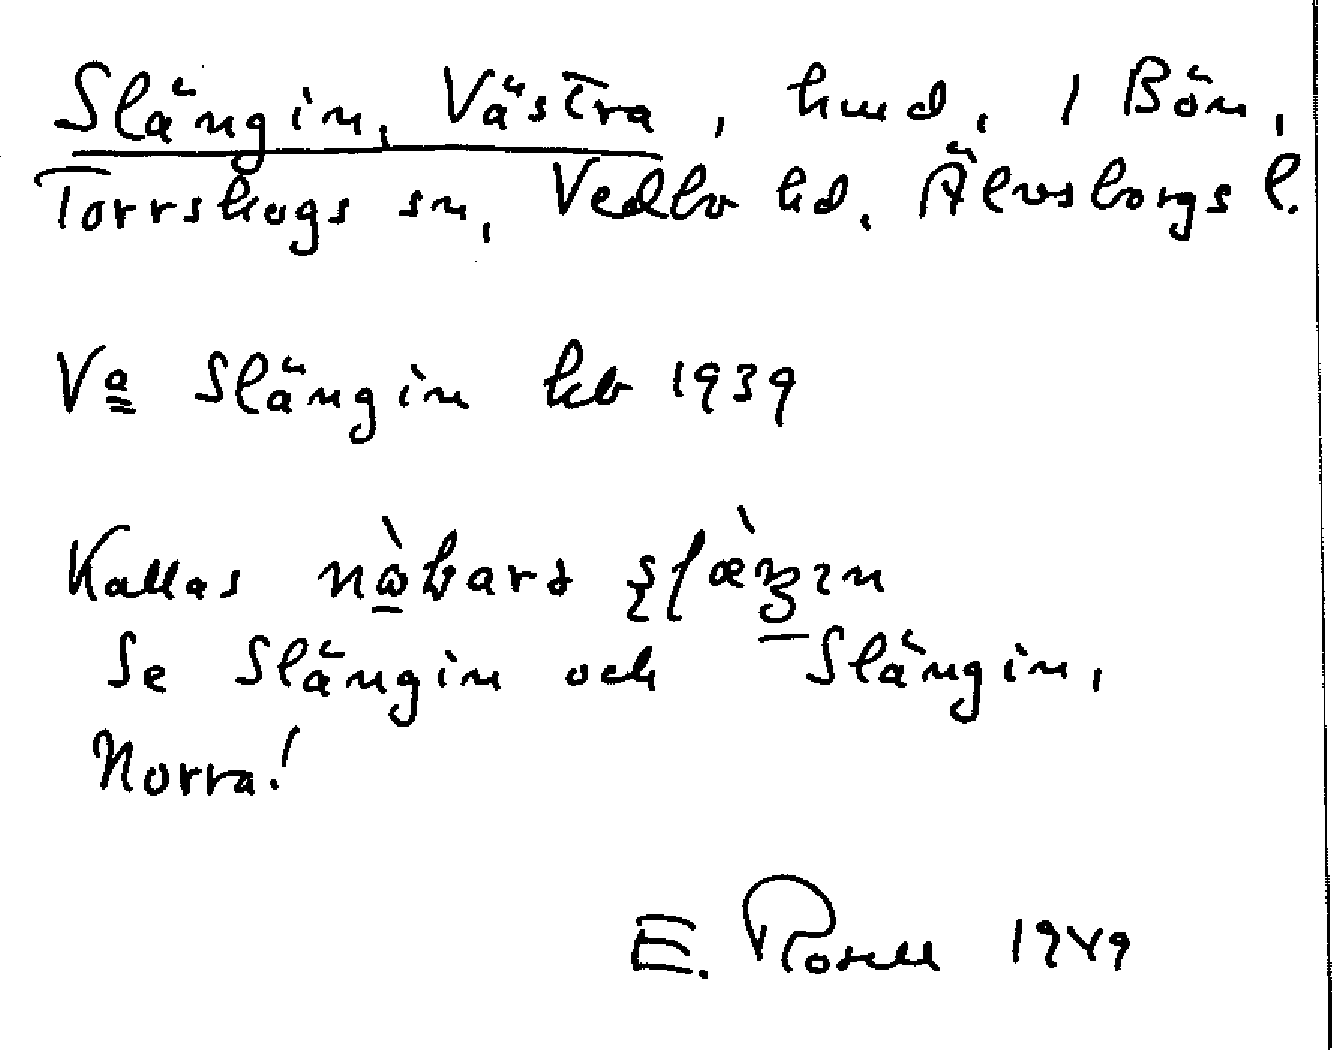 Slängin, Västra, hmd, 1 Bön,
Torrskogs sn, Vedbo hd, Älvsborgs l.
Va Slängin kb 1939
Kallas
Se Slängin och Slängin,
Norra!
E. Rosell 1949